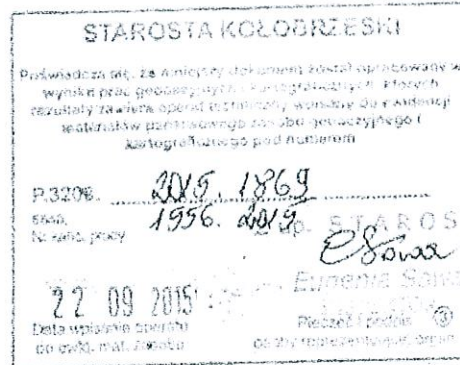 STAROSTA KOŁOBRZESKI
Poświadcza się, że niniejszy dokument został opracowany w
wyniku prac geodezyjnych i kartograficznych, których
rezultaty zawiera operat techniczny wpisany do ewidencji
materiałów państwowego zasobu geodezyjnego i
kartograficznego pod numerem
P.3208. 2015.1869
1556.2015
up. STAROS
ESowa
Eugenia Sowa
22 09 2015
Data wpisania operatu
do ewid. mat. zasobu
Pieczęć i podpis ③
osoby reprezentującej organ